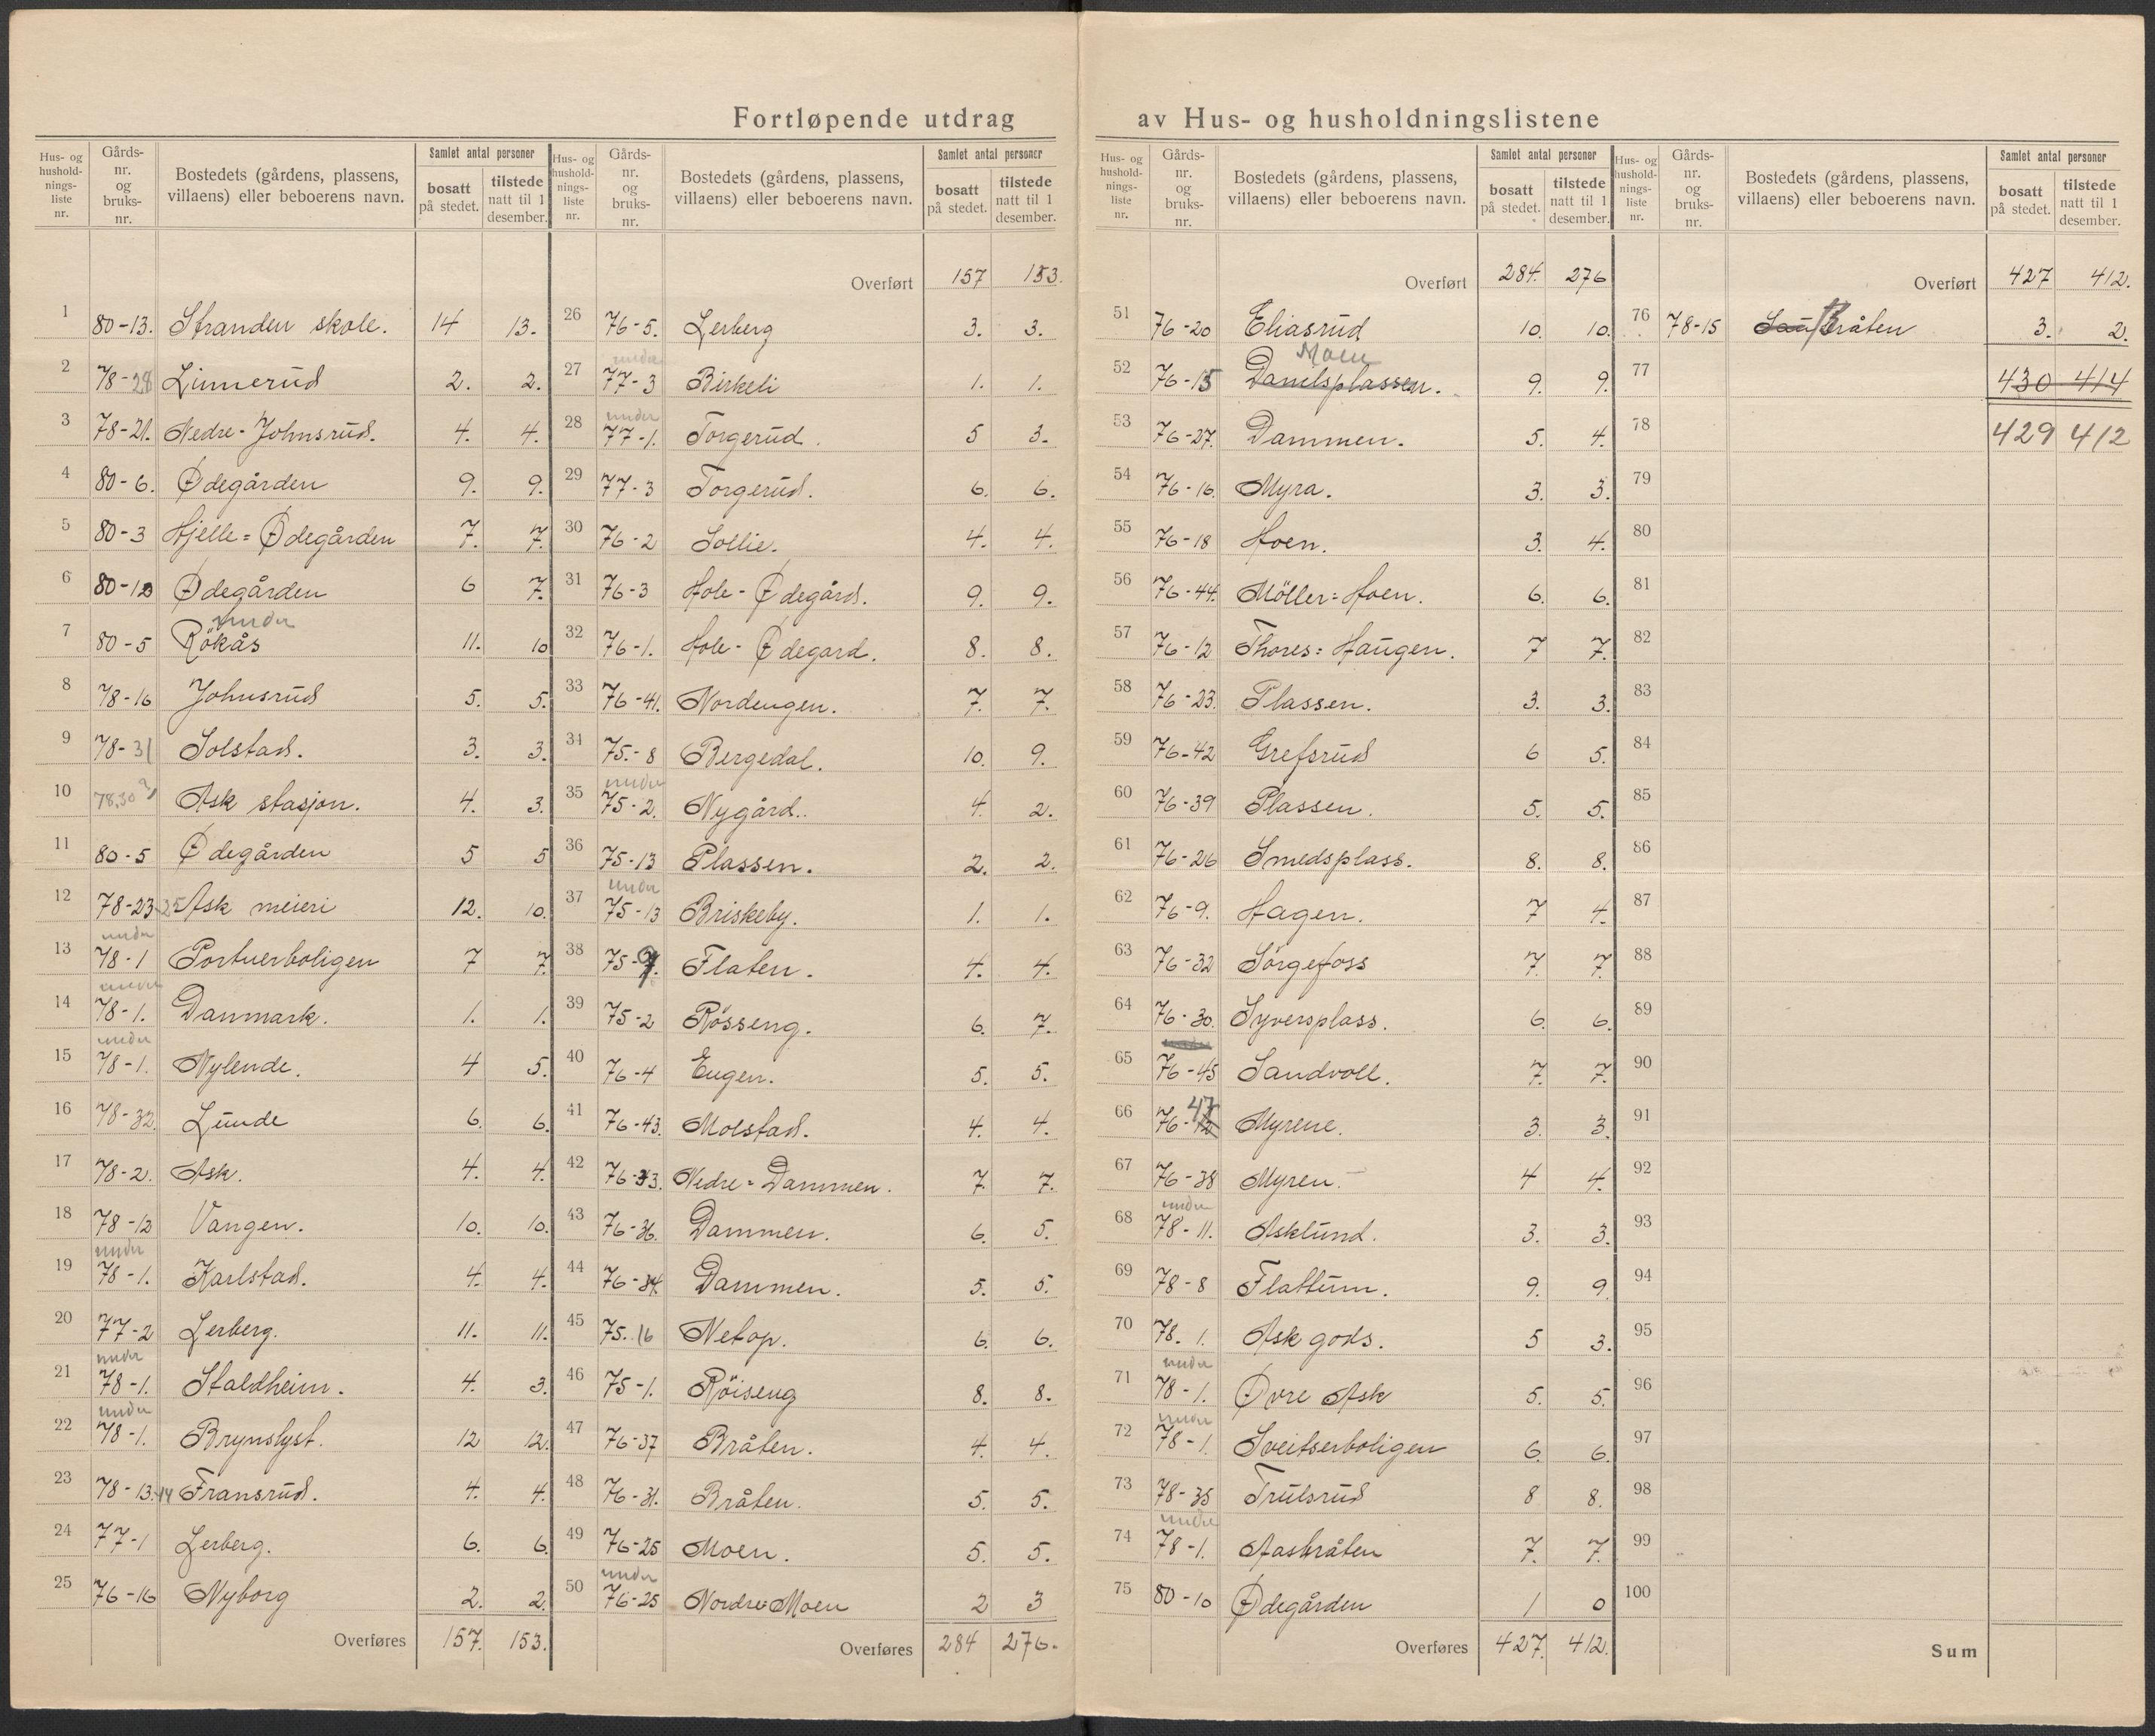 Fortløpende utdrag av Hus- og husholdningslistene
Hus- og husholdnings-liste nr. Gårds-nr. og bruks-nr. Bostedets (gårdens, plassens, villaens) eller beboerens navn. Samlet antal personer bosatt på stedet. tilstede natt til 1 desember.
1 80-13. Stranden skole. 14 13.
2 78-28 Linnerud 2. 2.
3 78-21. Nedre-Johnsrud. 4. 4.
4 80-6. Ødegården 9. 9.
5 80-3 Hjelle=Ødegården 7. 7.
6 80-12 Ødegården 6 7.
7 80-5 under Rökås 11. 10
8 78-16 Johnsrud 5. 5.
9 78-31 Solstad. 3. 3.
10 78,30 Ask stasjon. 4. 3.
11 80-5 Ødegården 5 5
12 78-23-25 Ask meieri 12. 10.
13 under 78-1 Portnerboligen 7 7.
14 under 78-1. Danmark. 1. 1.
15 under 78-1. Nylende. 4 5.
16 78-32. Lunde 6. 6.
17 78-2. Ask. 4. 4.
18 78-12 Vangen. 10. 10.
19 under 78-1. Karlstad. 4. 4.
20 77-2 Lerberg. 11. 11.
21 under 78-1. Staldheim. 4. 3.
22 under 78-1. Brynslyst. 12 12.
23 78-13-14 Fransrud. 4. 4.
24 77-1 Lerberg. 6. 6.
25 76-16 Nyborg 2. 2.
Overføres 157. 153.
Hus- og husholdnings-liste nr. Gårds-nr. og bruks-nr. Bostedets (gårdens, plassens, villaens) eller beboerens navn. Samlet antal personer bosatt på stedet. tilstede natt til 1 desember.
Overført 157 153.
26 76-5. Lerberg 3. 3.
27 under 77-3 Birkeli 1. 1.
28 under 77-1. Torgerud. 5 3.
29 77-3 Torgerud. 6. 6.
30 76-2 Sollie. 4. 4.
31 76-3 Hole-Ødegård. 9. 9.
32 76-1. Hole-Ødegard. 8. 8.
33 76-41. Nordengen. 7. 7.
34 75-8 Bergedal. 10. 9.
35 under 75-2. Nygård. 4. 2.
36 75-13 Plassen. 2. 2.
37 under 75-13 Briskeby. 1. 1.
38 75-9. Flaten. 4. 4.
39 75-2 Rösseng. 6. 7.
40 76-4 Engen. 5. 5.
41 76-43. Molstad. 4. 4.
42 76-33. Nedre=Dammen. 7. 7.
43 76-36. Dammen. 6. 5.
44 76-34. Dammen. 5. 5.
45 75.16 Netop. 6. 6.
46 75-1. Röiseng 8. 8.
47 76-37 Bråten. 4. 4.
48 76-31. Bråten. 5. 5.
49 76-25 Moen. 5. 5.
50 under 76-25 Nordre Moen 2 3
Overføres 284 276.
Hus- og husholdnings-liste nr. Gårds-nr. og bruks-nr. Bostedets (gårdens, plassens, villaens) eller beboerens navn. Samlet antal personer bosatt på stedet. tilstede natt til 1 desember.
Overført 284. 276
51 76-20 Eliasrud 10. 10.
52 76-15 Moen Danilsplassen. 9. 9.
53 76-27. Dammen. 5. 4.
54 76-16. Myra. 3. 3.
55 76-18 Hoen. 3. 4.
56 76-44. Möller=Hoen. 6. 6.
57 76-12 Thores=Haugen. 7 7.
58 76-23. Plassen. 3. 3.
59 76-42 Grefsrud 6 5.
60 76-39 Plassen. 5. 5.
61 76-26 Smedsplass. 8. 8.
62 76-9. Hagen. 7 4.
63 76-32 Sörgefoss 7. 7.
64 76-30. Syversplass. 6. 6.
65 76-45 Sandvoll. 7. 7.
66 76-47 Myrene. 3. 3.
67 76-38 Myren. 4 4.
68 under 78-11. Asklund. 3. 3.
69 78-8 Flattum. 9. 9.
70 78.1. Ask gods. 5 3.
71 under 78-1. Øvre Ask 5. 5.
72 under 78-1. Sveitserboligen 6. 6.
73 78-35 Trulsrud 8 8.
74 under 78-1. Aasbråten 7. 7.
75 80-10 Ødegården 1 0
Overføres 427. 412.
Hus- og husholdnings-liste nr. Gårds-nr. og bruks-nr. Bostedets (gårdens, plassens, villaens) eller beboerens navn. Samlet antal personer bosatt på stedet. tilstede natt til 1 desember.
Overført 427 412.
76 78-15 Bråten 3. 2.
77 430 414
78 429 412
79
80
81
82
83
84
85
86
87
88
89
90
91
92
93
94
95
96
97
98
99
100
Sum